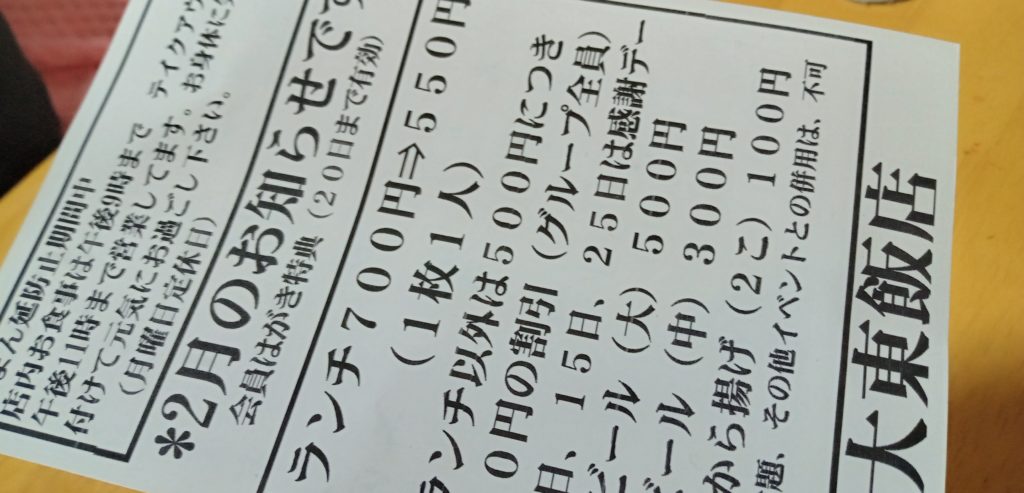 まん延防止期間中
店内お食事は午後9時まで　テイクアウ
午後11時まで営業してます。お身体に
付けて元気にお過ごし下さい。
（月曜日定休日）
*2月のお知らせで
会員はがき特典（20日まで有効）
ランチ700円⇒550円
（1枚1人）
ランチ以外は500円につき
0円の割引（グループ全員）
日、15日、25日は感謝デー
ビール（大）500円
ビール（中）300円
から揚げ（2こ）100円
題、その他イベントとの併用は、不可
大東飯店